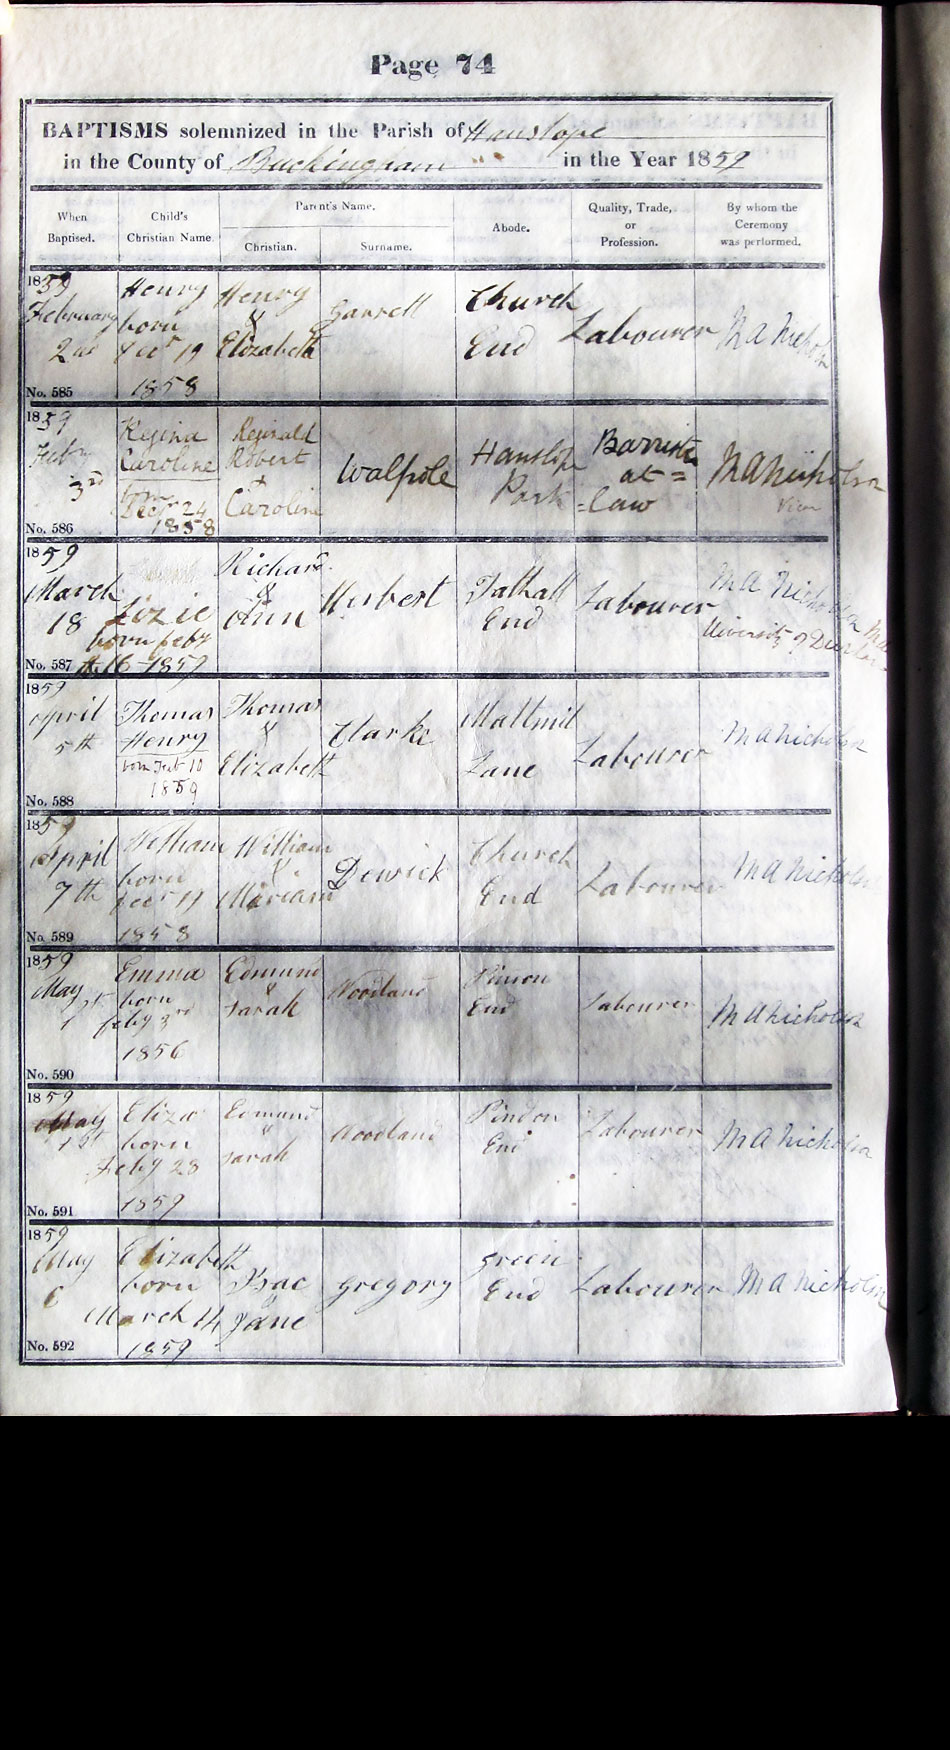 Page 74
BAPTISMS solemnized in the Parish of Hanslope
in the County of Buckingham in the Year 1859
When Baptised.
Child's Christian Name.
Parent's Name.
Christian.
Surname.
Abode.
Quality, Trade, or Profession.
By whom the Ceremony was performed.
1859
February
2nd
No. 585
Henry
born
19
1858
Henry
&
Elizabeth
Garrett
Church
End
Labourer
M A Nicholson
1859
Feby
3rd
No. 586
Regina
Caroline
born
Decr 24
1858
Reginald
Robert
+
Caroline
Walpole
Hanslope
Park
Barrister
at =
= Law
M A Nicholson
Vicar
1859
March
18
No. 587
Lizzie
born Feby
16 1859
Richard
&
Ann
Herbert
Tathall
End
Labourer
M A Nicholson
University of Durham
1859
April
5th
No. 588
Thomas
Henry
born Feb 10
1859
Thomas
&
Elizabeth
Clarke
Maltmil
Lane
Labourer
M A Nicholson
1859
April
7th
No. 589
William
born
Decr 19
1858
William
&
Miriam
Dewick
Church
End
Labourer
M A Nicholson
1859
May
1st
No. 590
Emma
born
feby 3rd
1856
Edmund
&
Sarah
Woodland
End
Labourer
M A Nicholson
1859
May
1st
No. 591
Eliza
born
Feby 28
1859
Edmund
"
Sarah
Woodland
Pindon
End
Labourer
M A Nicholson
1859
May
6
No. 592
Elizabeth
born
March 14
1859
Isac
&
Jane
Gregory
green
End
Labourer
M A Nicholson